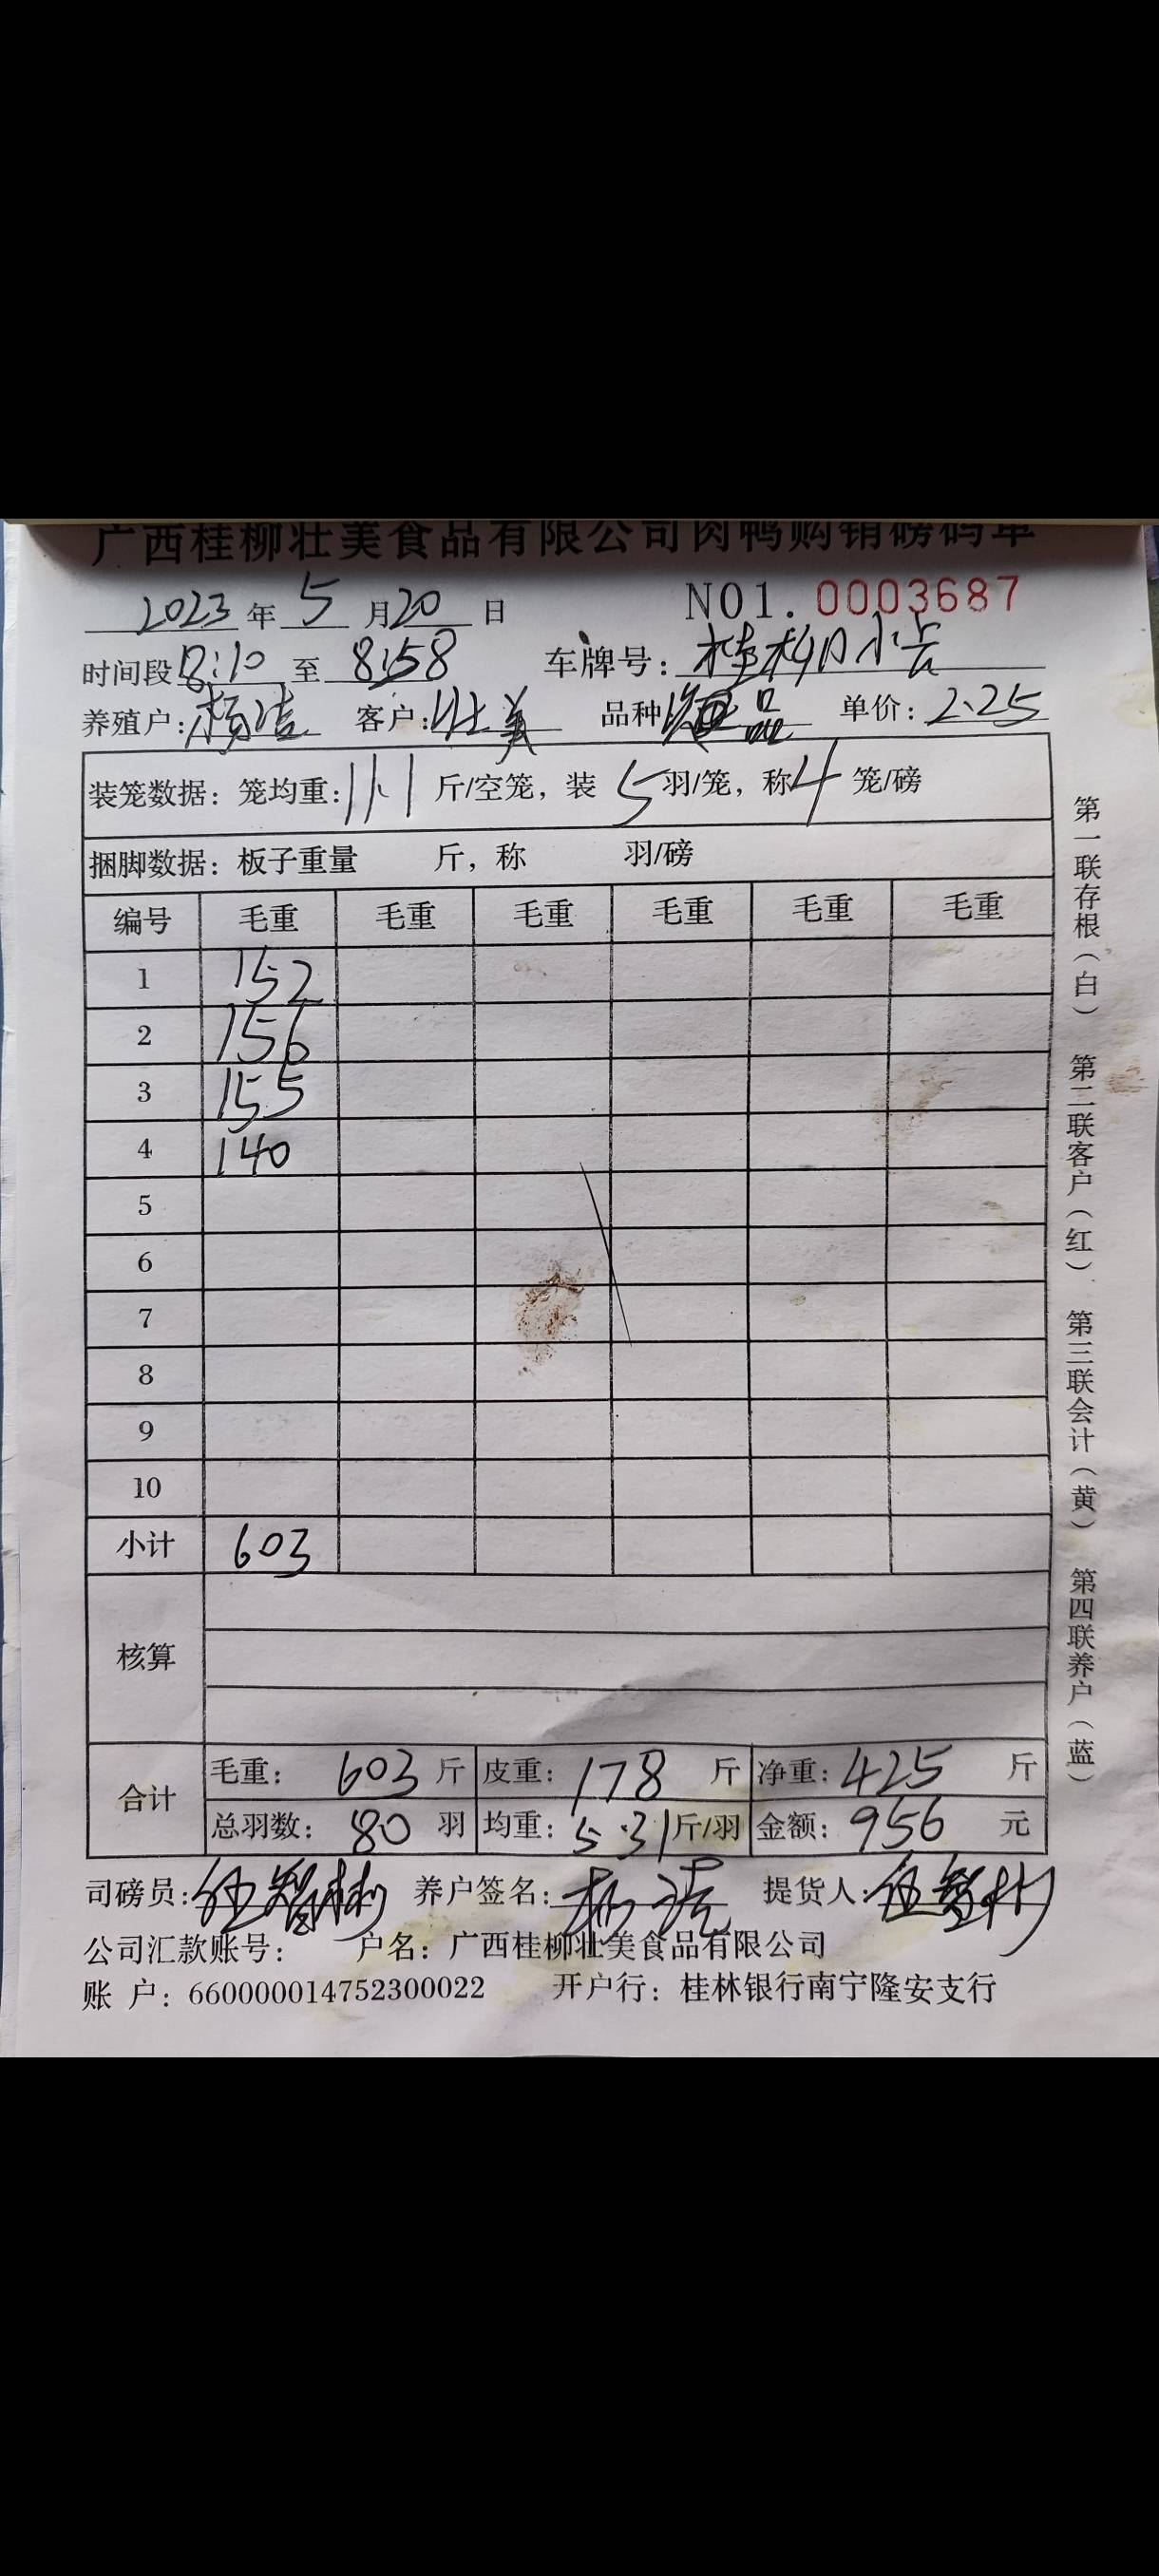 广西桂柳壮美食品有限公司肉鸭购销磅码单
2023年5月20日 NO1.0003687
时间段8:10至8:58 车牌号:桂柳
养殖户:杨 客户:壮美 品种 品 单价:2.25
装笼数据:笼均重:11.1斤/空笼,装5羽/笼,称4笼/磅
捆脚数据:板子重量 斤,称 羽/磅
编号 毛重 毛重 毛重 毛重 毛重 毛重
1 152
2 156
3 155
4 140
5
6
7
8
9
10
小计 603
核算
合计 毛重:603斤 皮重:178斤 净重:425斤
总羽数:80羽 均重:5.31斤/羽 金额:956元
司磅员: 养户签名: 提货人:
公司汇款账号: 户名:广西桂柳壮美食品有限公司
账 户:660000014752300022 开户行:桂林银行南宁隆安支行
第一联存根(白) 第二联客户(红) 第三联会计(黄) 第四联养户(蓝)